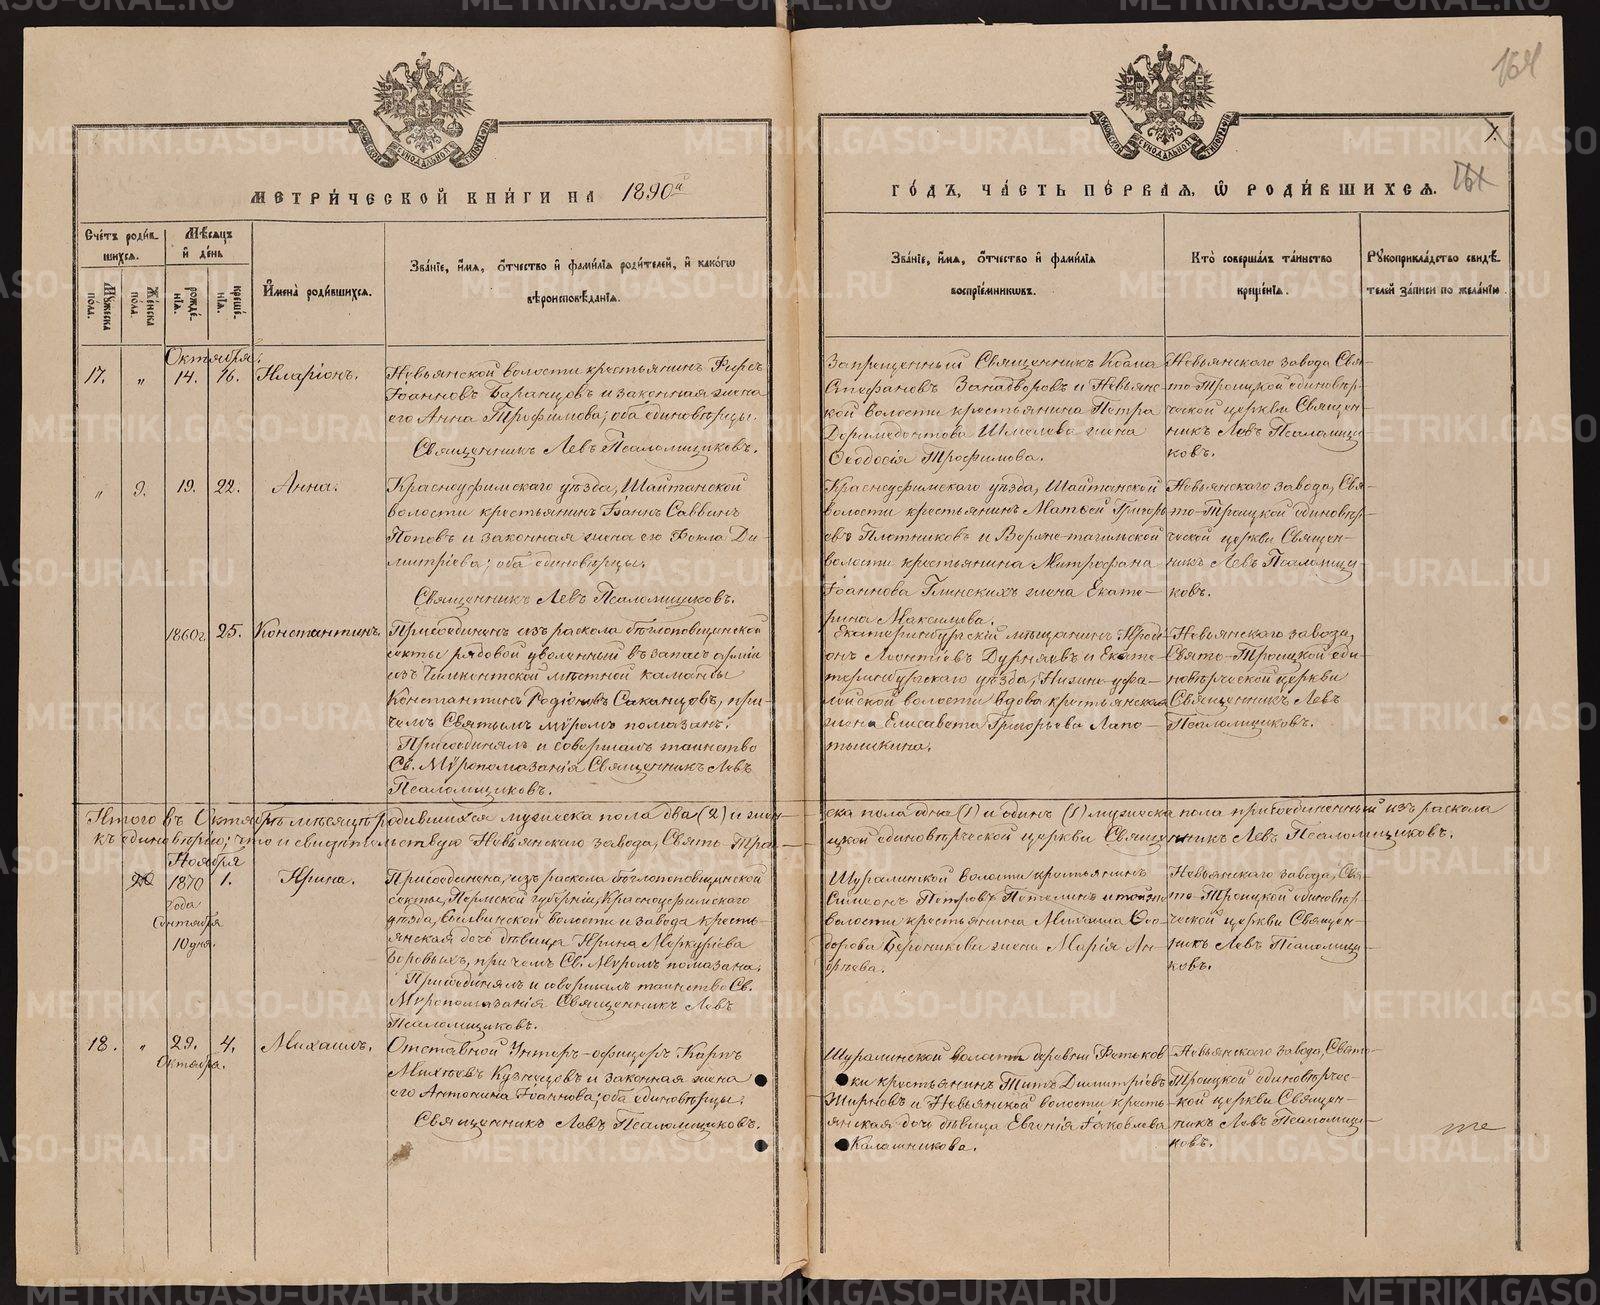 164
МЕТРИ́ЧЕСКОЙ КНИ́ГИ НА 1890й
ГО́ДЪ, ЧА́СТЬ ПЕ́РВАЯ, Ѿ РОДИ́ВШИХСЯ.
Сче́тъ роди́в-
шихся.
Му́жеска пола.
Же́нска по́ла.
Мѣ́сяцъ
и҆ де́нь
рожде́-
нїя.
креще́-
нїя.
И҆мена̀ роди́вшихся.
Зва́нїе, и҆́мя, ѻ҆́тчество и҆ фами́лїя роди́телей, и҆ како́гѡ
вѣроисповѣ́данїя.
Зва́нїе, и҆́мя, ѻ҆́тчество и҆ фами́лїя
воспрїе́мниковъ.
Кто̀ соверша́лъ та́инство
креще́нїя.
Рꙋкоприкла́дство свидѣ́-
телей за́писи по жела́нїю.
Октября.
17. „ 14. 16. Иларіонъ.
Невьянской волости крестьянинъ Фирсъ
Іоанновъ Баранцовъ и законная жена
его Анна Трофимова; оба единовѣрцы.
Священникъ Левъ Псаломщиковъ.
Запрещенный Священникъ Іоаннъ
Стефановъ Западворовъ и Невьянс-
кой волости крестьянина Петра
Доримедонтова Шмелева жена
Ѳеодосія Трофимова.
Невьянскаго завода Свя-
то-Троицкой единовѣр-
ческой церкви Священ-
никъ Левъ Псаломщи-
ковъ.
„ 9. 19. 22. Анна.
Красноуфимскаго уѣзда, Шайтанской
волости крестьянинъ Іоаннъ Саввинъ
Поповъ и законная жена его Ѳекла Ди-
митріева; оба единовѣрцы.
Священникъ Левъ Псаломщиковъ.
Красноуфимскаго уѣзда, Шайтанской
волости крестьянинъ Матѳей Григорь-
евъ Плотниковъ и Верхне-тагильской
волости крестьянина Митрофана
Іоаннова Глинскихъ жена Екате-
рина Максимова.
Невьянскаго завода, Свя-
то-Троицкой единовѣр-
ческой церкви Священ-
никъ Левъ Псаломщи-
ковъ.
1860г. 25. Константинъ.
Присоединенъ изъ раскола бѣглопоповщинской
секты рядовой уволенный въ запасъ арміи
изъ Чимкентской мѣстной команды
Константинъ Родіоновъ Саканцовъ, при-
чемъ Святымъ мѵромъ помазанъ.
Присоединялъ и совершалъ таинство
Св. Мѵропомазанія Священникъ Левъ
Псаломщиковъ.
Екатеринбургскій мѣщанинъ Ироді-
онъ Леонтіевъ Дурняевъ и Екате-
ринбургскаго уѣзда, Нижне-уфа-
лейской волости вдова крестьянская
жена Елисавета Григорьева Лапо-
тышкина.
Невьянскаго завода,
Свято-Троицкой еди-
новѣрческой церкви
Священникъ Левъ
Псаломщиковъ.
Итого въ Октябрѣ мѣсяцѣ родившихся мужеска пола два (2) и жен-
ска пола одна (1) и одинъ (1) мужеска пола присоединенный изъ раскола
къ единовѣрію; что и свидѣтельствую Невьянскаго завода, Свято-Трои-
цкой единовѣрческой церкви Священникъ Левъ Псаломщиковъ.
Ноября
1870 1. Ирина.
года
Сентября
10 дня.
Присоединена, изъ раскола бѣглопоповщинской
секты, Пермской губерніи, Красноуфимскаго
уѣзда, Сылвинской волости и завода кресть-
янская дочь дѣвица Ирина Меркуріева
Боровыхъ, при чемъ Св. Мѵромъ помазана.
Присоединялъ и совершалъ таинство Св.
Мѵропомазанія Священникъ Левъ
Псаломщиковъ.
Шуралинской волости крестьянинъ
Симеонъ Петровъ Потепинъ и той же
волости крестьянина Михаила Ѳео-
дорова Берсеникова жена Марія Ан-
дреева.
Невьянскаго завода, Свя-
то-Троицкой единовѣр-
ческой церкви Священ-
никъ Левъ Псаломщи-
ковъ.
18. „ 29. 4. Михаилъ.
Октября.
Отставной Унтеръ-офицеръ Карпъ
Михѣевъ Кузнецовъ и законная жена
его Антонина Іоаннова; оба единовѣрцы.
Священникъ Левъ Псаломщиковъ.
Шуралинской волости деревни Фетьков-
ки крестьянинъ Титъ Димитріевъ
Жирновъ и Невьянской волости кресть-
янская дочь дѣвица Евгенія Іаковлева
Калашникова.
Невьянскаго завода, Свято-
Троицкой единовѣрчес-
кой церкви Священ-
никъ Левъ Псаломщи-
ковъ.
METRIKI.GASO-URAL.RU